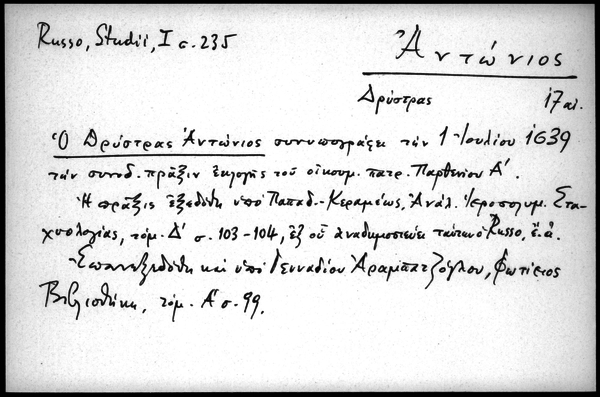 Russo, Studii, I σ. 235
Ἀντώνιος
Δρύστρας 17 αἰ.
Ὁ Δρύστρας Ἀντώνιος συνυπογράφει τὴν 1 Ἰουλίου 1639
τὴν συνοδ. πρᾶξιν ἐκλογῆς τοῦ οἰκουμ. πατρ. Παρθενίου Α΄.
Ἡ πρᾶξις ἐξεδόθη ὑπὸ Παπαδ.-Κεραμέως, Ἀνάλ. Ἱεροσολυμ. Στα-
χυολογίας, τόμ. Δ΄ σ. 103-104, ἐξ οὗ ἀναδημοσιεύει ταύτην ὁ Russo, ἔ.ἀ.
Ἐπανεξεδόθη καὶ ὑπὸ Γενναδίου Ἀραμπατζόγλου, Φωτίειος
Βιβλιοθήκη, τόμ. Α΄ σ. 99.